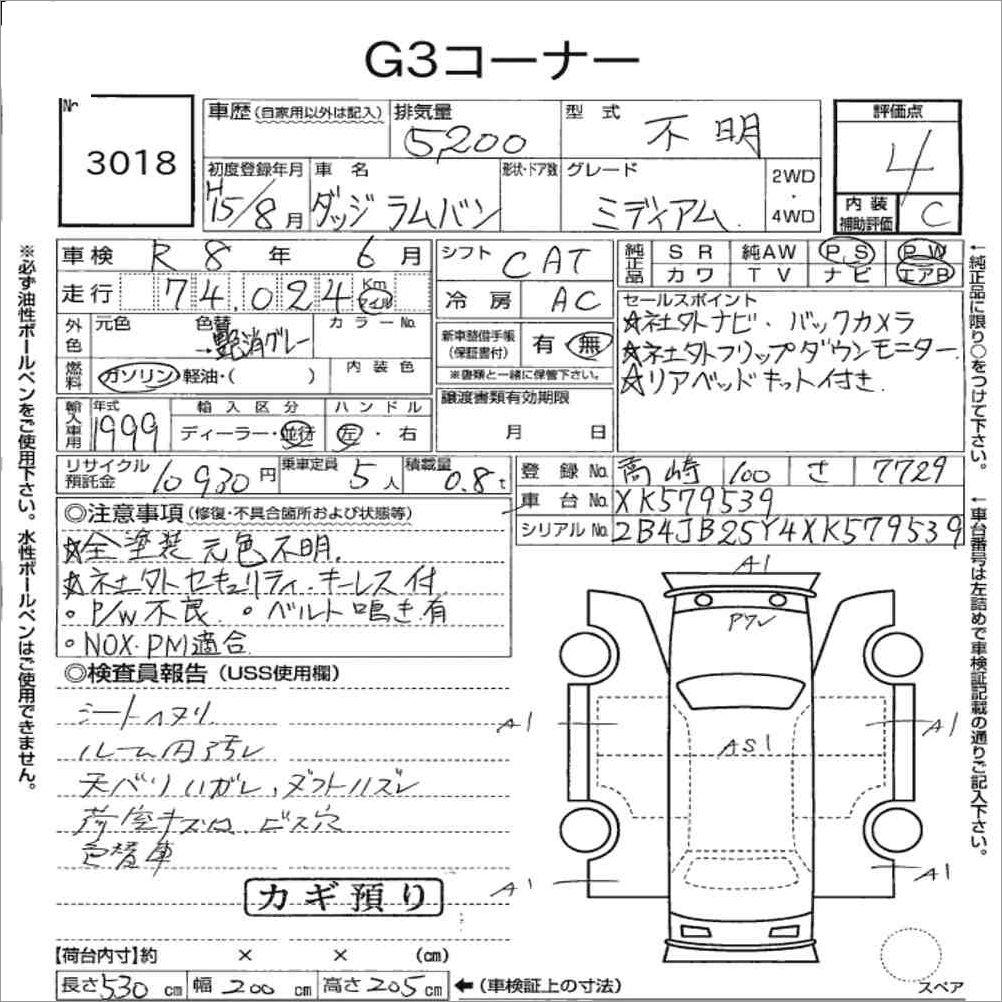 G3コーナー
No.
3018
車歴(自家用以外は記入)
排気量
5200
型式
不明
評価点
4
内装
補助評価
C
初度登録年月
H15/8月
車名
ダッジ ラムバン
形状・ドア数
グレード
ミディアム
2WD
・
4WD
車検 R 8 年 6 月
走行 74,024 Km マイル
シフト CAT
冷房 AC
純正品
SR 純AW PS PW
カワ TV ナビ エアB
外色
元色
色替
→艶消グレー
カラーNo.
燃料
ガソリン・軽油・( )
内装色
新車整備手帳
(保証書付)
有 無
※書類と一緒に保管下さい。
セールスポイント
☆社外ナビ・バックカメラ
☆社外フリップダウンモニター
☆リアベッドキット付き
輸入車用
年式
1999
輸入区分
ディーラー・並行
ハンドル
左・右
譲渡書類有効期限
月 日
リサイクル
預託金
10930円
乗車定員
5人
積載量
0.8t
登録No. 高崎 100 さ 7729
車台No. XK579539
シリアルNo. 2B4JB25Y4XK579539
◎注意事項(修復・不具合箇所および状態等)
☆全塗装 元色不明.
☆社外セキュリティ.キーレス付
・P/W不良 ・ベルト鳴き有
・NOX・PM適合
◎検査員報告(USS使用欄)
シートヘタリ
ルーム内汚レ
天バリハガレ、ダクトハズレ
荷室キズ凹、ビス穴
色替車
カギ預り
A1
Pワレ
A1
A1
AS1
A1
A1
スペア
【荷台内寸】約 × × (cm)
長さ530cm 幅200cm 高さ205cm ←(車検証上の寸法)
※必ず油性ボールペンをご使用下さい。水性ボールペンはご使用できません。
←純正品に限り○をつけて下さい。
←車台番号は左詰めで車検証記載の通りご記入下さい。